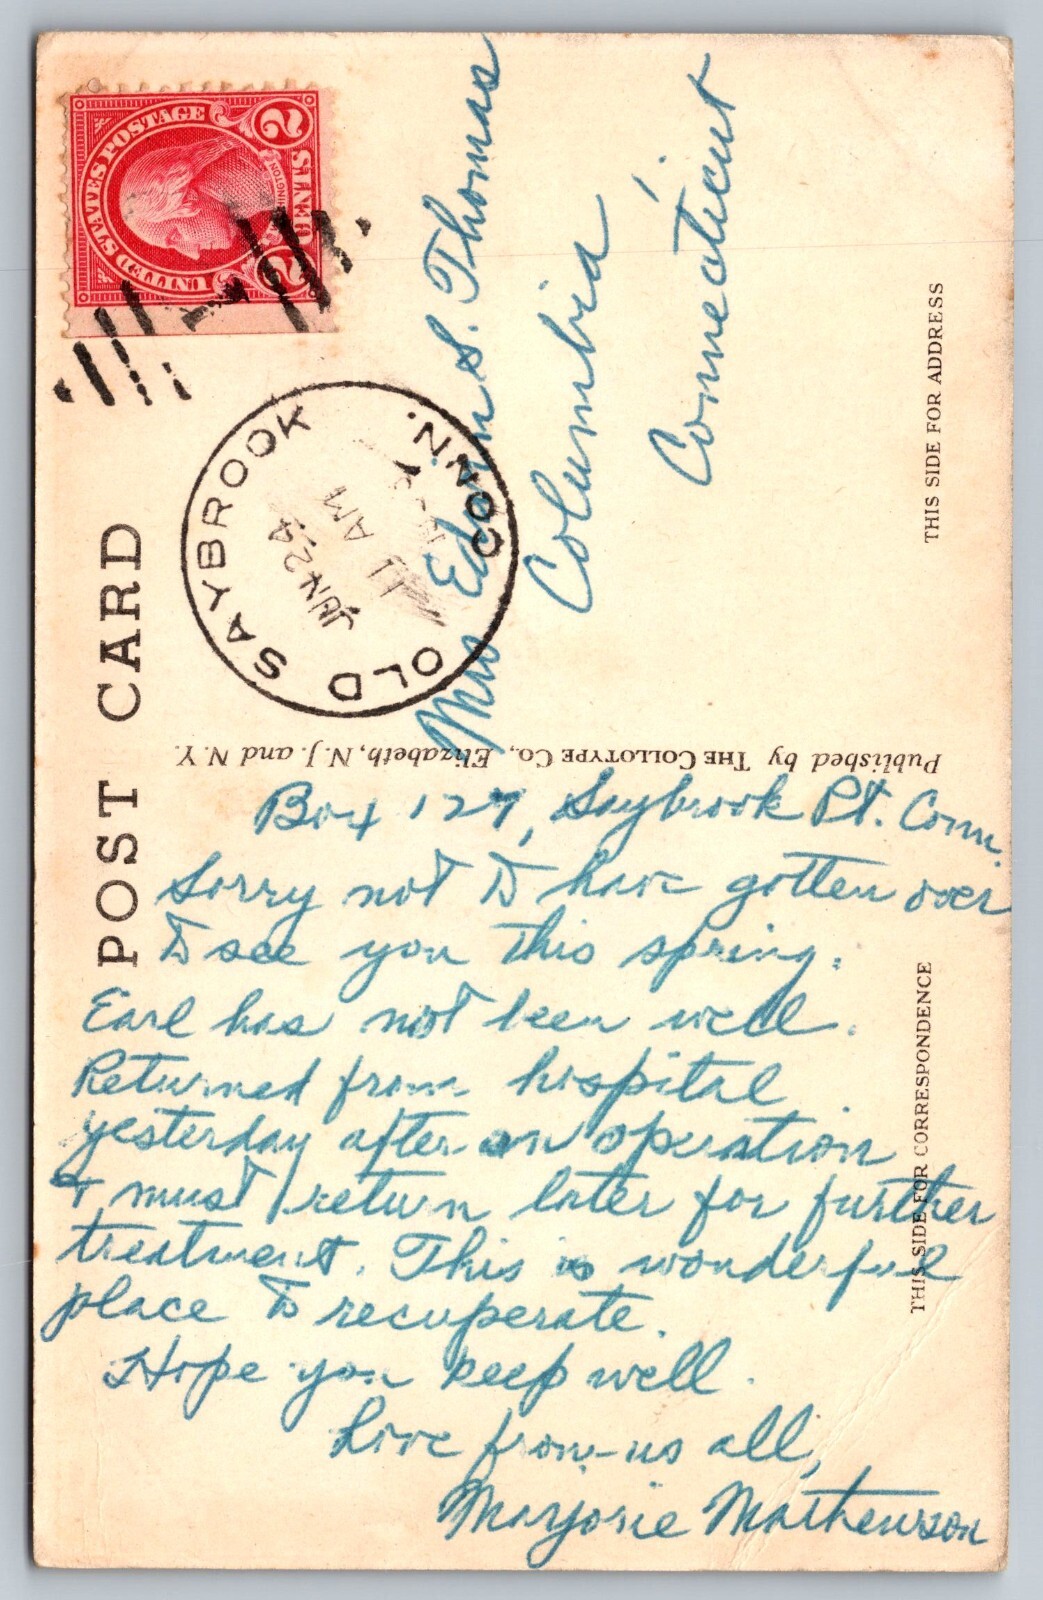 POST CARD
UNITED STATES POSTAGE
WASHINGTON
2 CENTS 2
OLD SAYBROOK
CONN.
JUN 24
11 AM
Mrs Edwin S. Thomas
Columbia
Connecticut
THIS SIDE FOR ADDRESS
Published by THE COLLOTYPE Co., Elizabeth, N. J. and N. Y.
Box 127, Saybrook Pt. Conn.
Sorry not to have gotten over
to see you this spring.
Earl has not been well.
Returned from hospital
yesterday after an operation
& must return later for further
treatment. This is wonderful
place to recuperate.
Hope you keep well.
Love from us all,
Marjorie Mathewson
THIS SIDE FOR CORRESPONDENCE